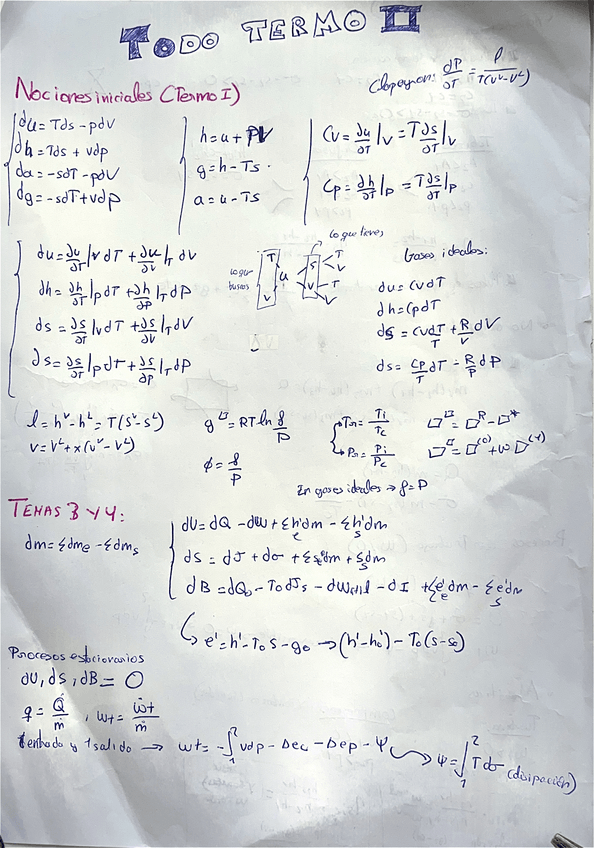 TODO TERMO II
Nociones iniciales (Termo I)
Clapeyron: dP/dT = l/T(v^v-v^L)
du = Tds - pdV
dh = Tds + vdp
da = -sdT - pdV
dg = -sdT + vdp
h = u + PV
g = h - Ts
a = u - Ts
Cv = ∂u/∂T|v = T∂s/∂T|v
Cp = ∂h/∂T|p = T∂s/∂T|p
du = ∂u/∂T|v dT + ∂u/∂v|T dV
dh = ∂h/∂T|p dT + ∂h/∂p|T dP
ds = ∂s/∂T|v dT + ∂s/∂v|T dV
ds = ∂s/∂T|p dT + ∂s/∂p|T dP
lo que tienes
lo que buscas
T
V
u
S
V
T
V
T
V
Gases ideales:
du = CvdT
dh = CpdT
ds = CvdT/T + R/v dV
ds = Cp/T dT - R/P dP
l = h^v - h^L = T(s^v - s^L)
v = v^L + x(v^v - v^L)
g^□ = RT ln f/P
φ = f/P
Trn = Ti/Tc
Prn = Pi/Pc
□^□ = □^R - □^*
□^□ = □^(0) + ω □^(1)
En gases ideales → f = P
TEMAS 3 Y 4:
dm = Σdme - Σdms
dU = dQ - dW + Σe h'dm - Σs h'dm
dS = dJ + dσ + Σe sdm + Σs sdm
dB = dQo - TodJs - dWútil - dI + Σe e'dm - Σs e'dm
e' = h' - Tos - go → (h' - ho') - To(s - so)
Procesos estacionarios
dU, dS, dB = 0
q = Q̇/ṁ, wt = Ẇt/ṁ
1 entrada y 1 salida → wt = -∫1^2 vdp - Δec - Δep - Ψ
Ψ = ∫1^2 Tdσ (disipación)